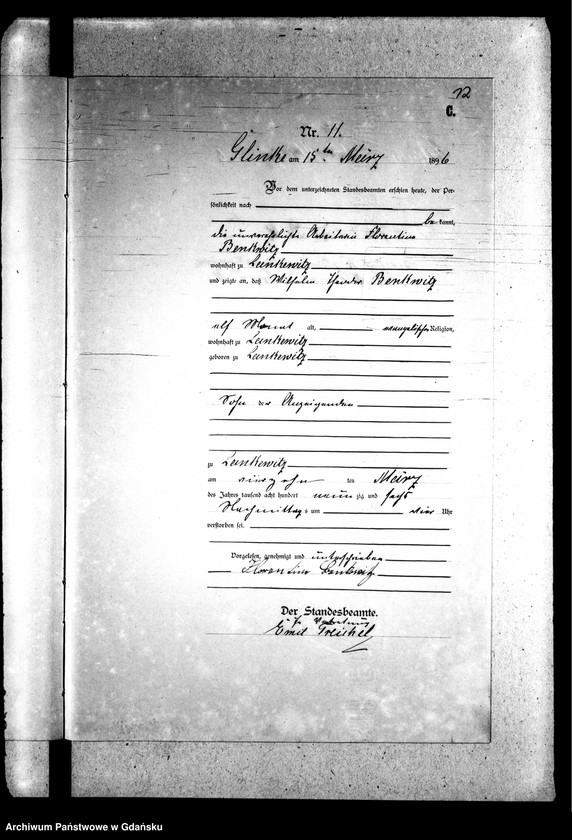 12
C.
Nr. 11.
Glinke am 15ten März 1896
Vor dem unterzeichneten Standesbeamten erschien heute, der Per-
sönlichkeit nach
be kannt,
die unverehelichte Arbeiterin Florentine
Benkwitz
wohnhaft zu Lankewitz
und zeigte an, daß Wilhelm Theodor Benkwitz
elf Monat alt, evangelischer Religion,
wohnhaft zu Lankewitz
geboren zu Lankewitz
Sohn der Anzeigenden
zu Lankewitz
am vierzehn ten März
des Jahres tausend acht hundert neun zig und sechs
Nachmittags um vier Uhr
verstorben sei.
Vorgelesen, genehmigt und unterschrieben
Florentine Benkwitz
Der Standesbeamte.
Emil Treichel
Archiwum Państwowe w Gdańsku